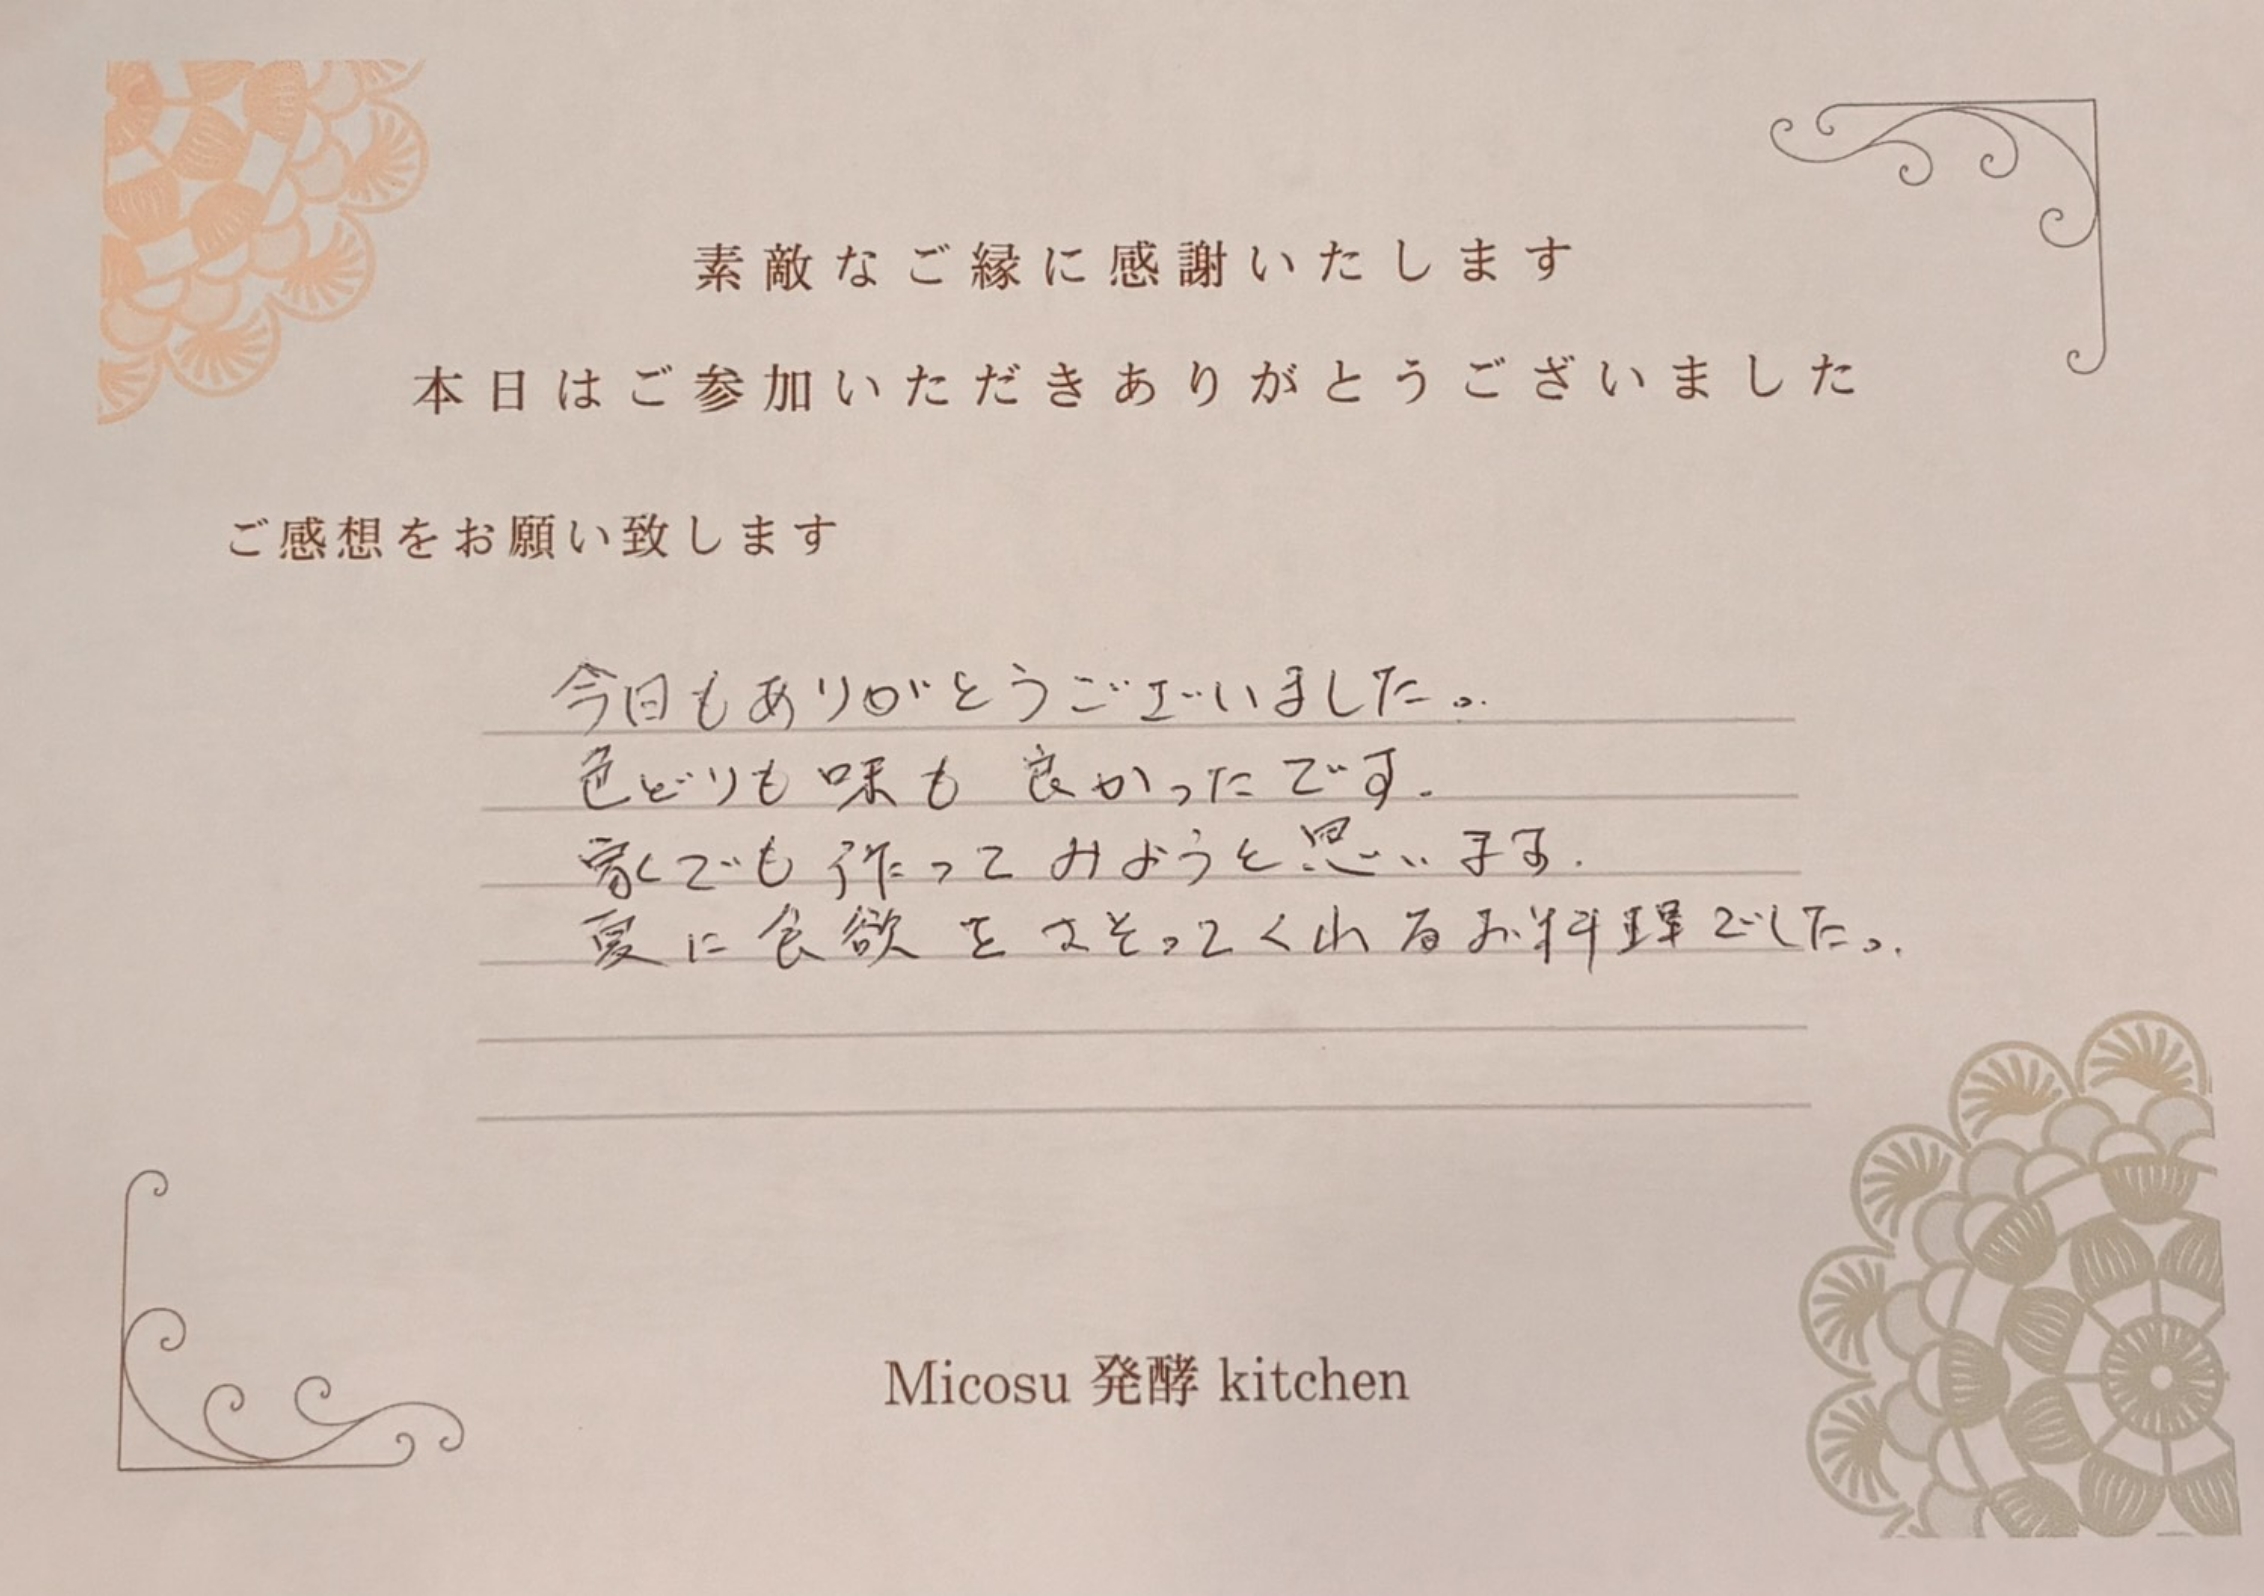 素敵なご縁に感謝いたします
本日はご参加いただきありがとうございました
ご感想をお願い致します
今日もありがとうございました。
色どりも味も良かったです。
家でも作ってみようと思います。
夏に食欲をさそってくれるお料理でした。
Micosu 発酵 kitchen